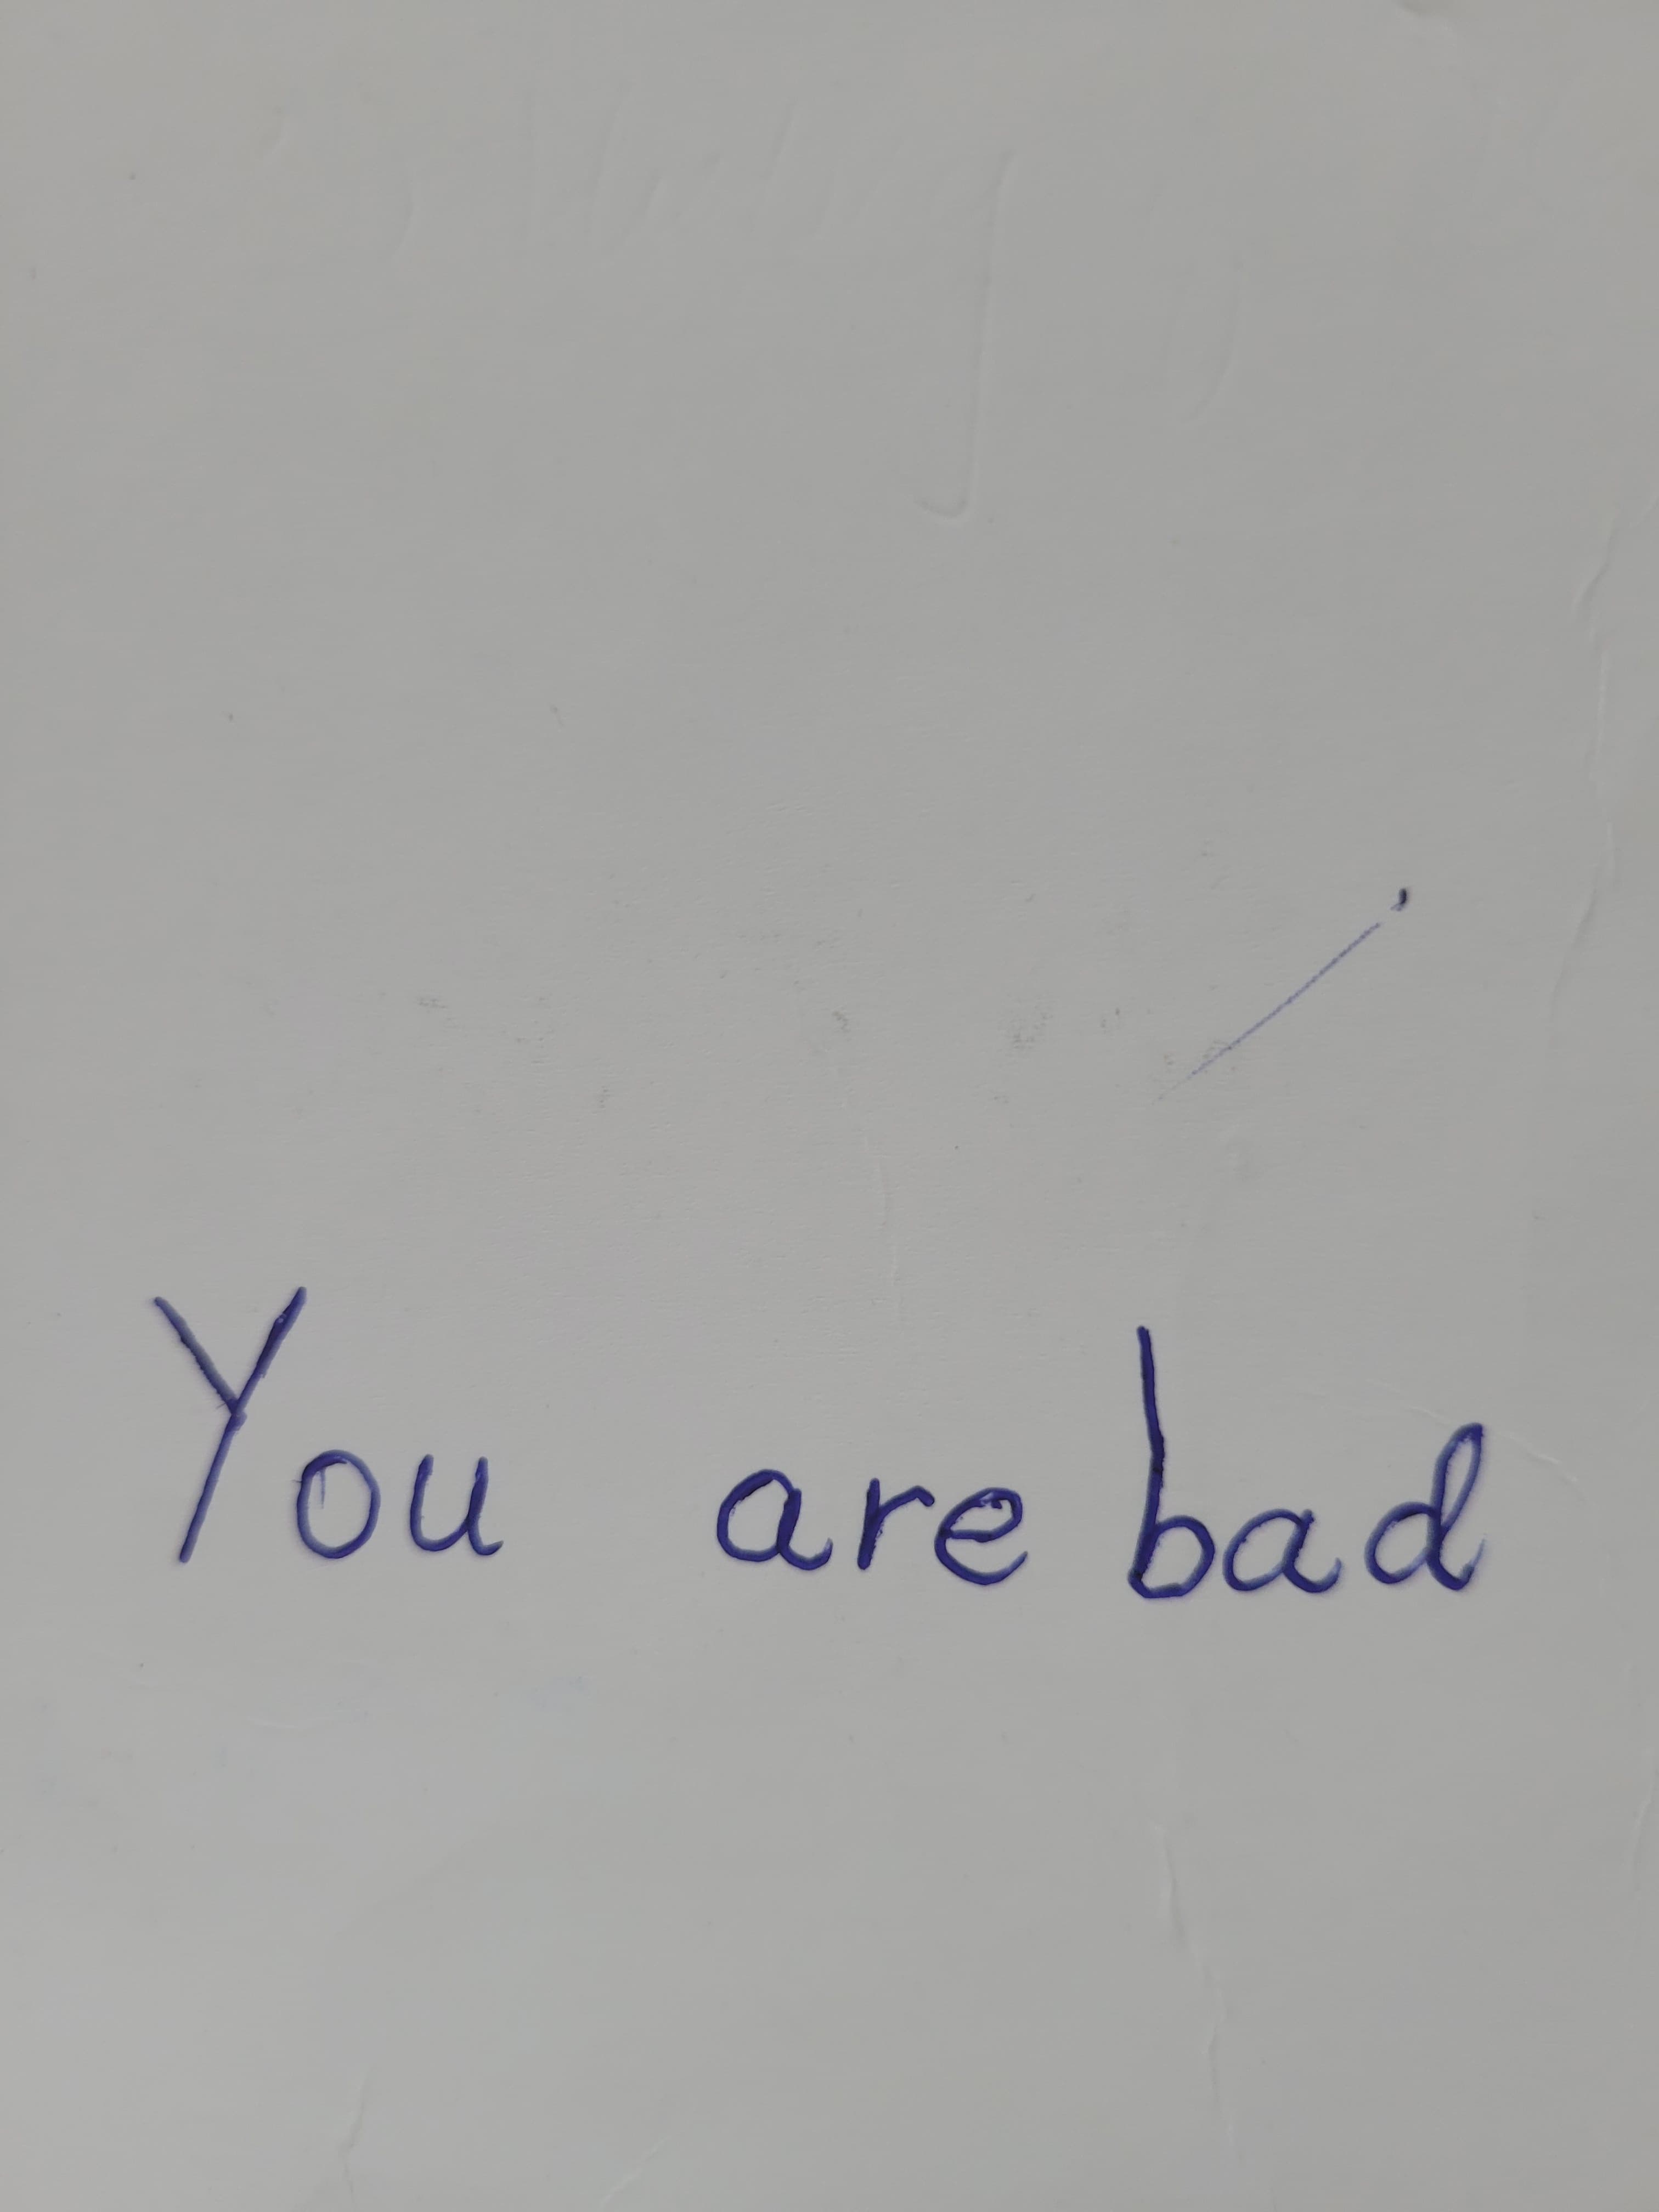 You are bad